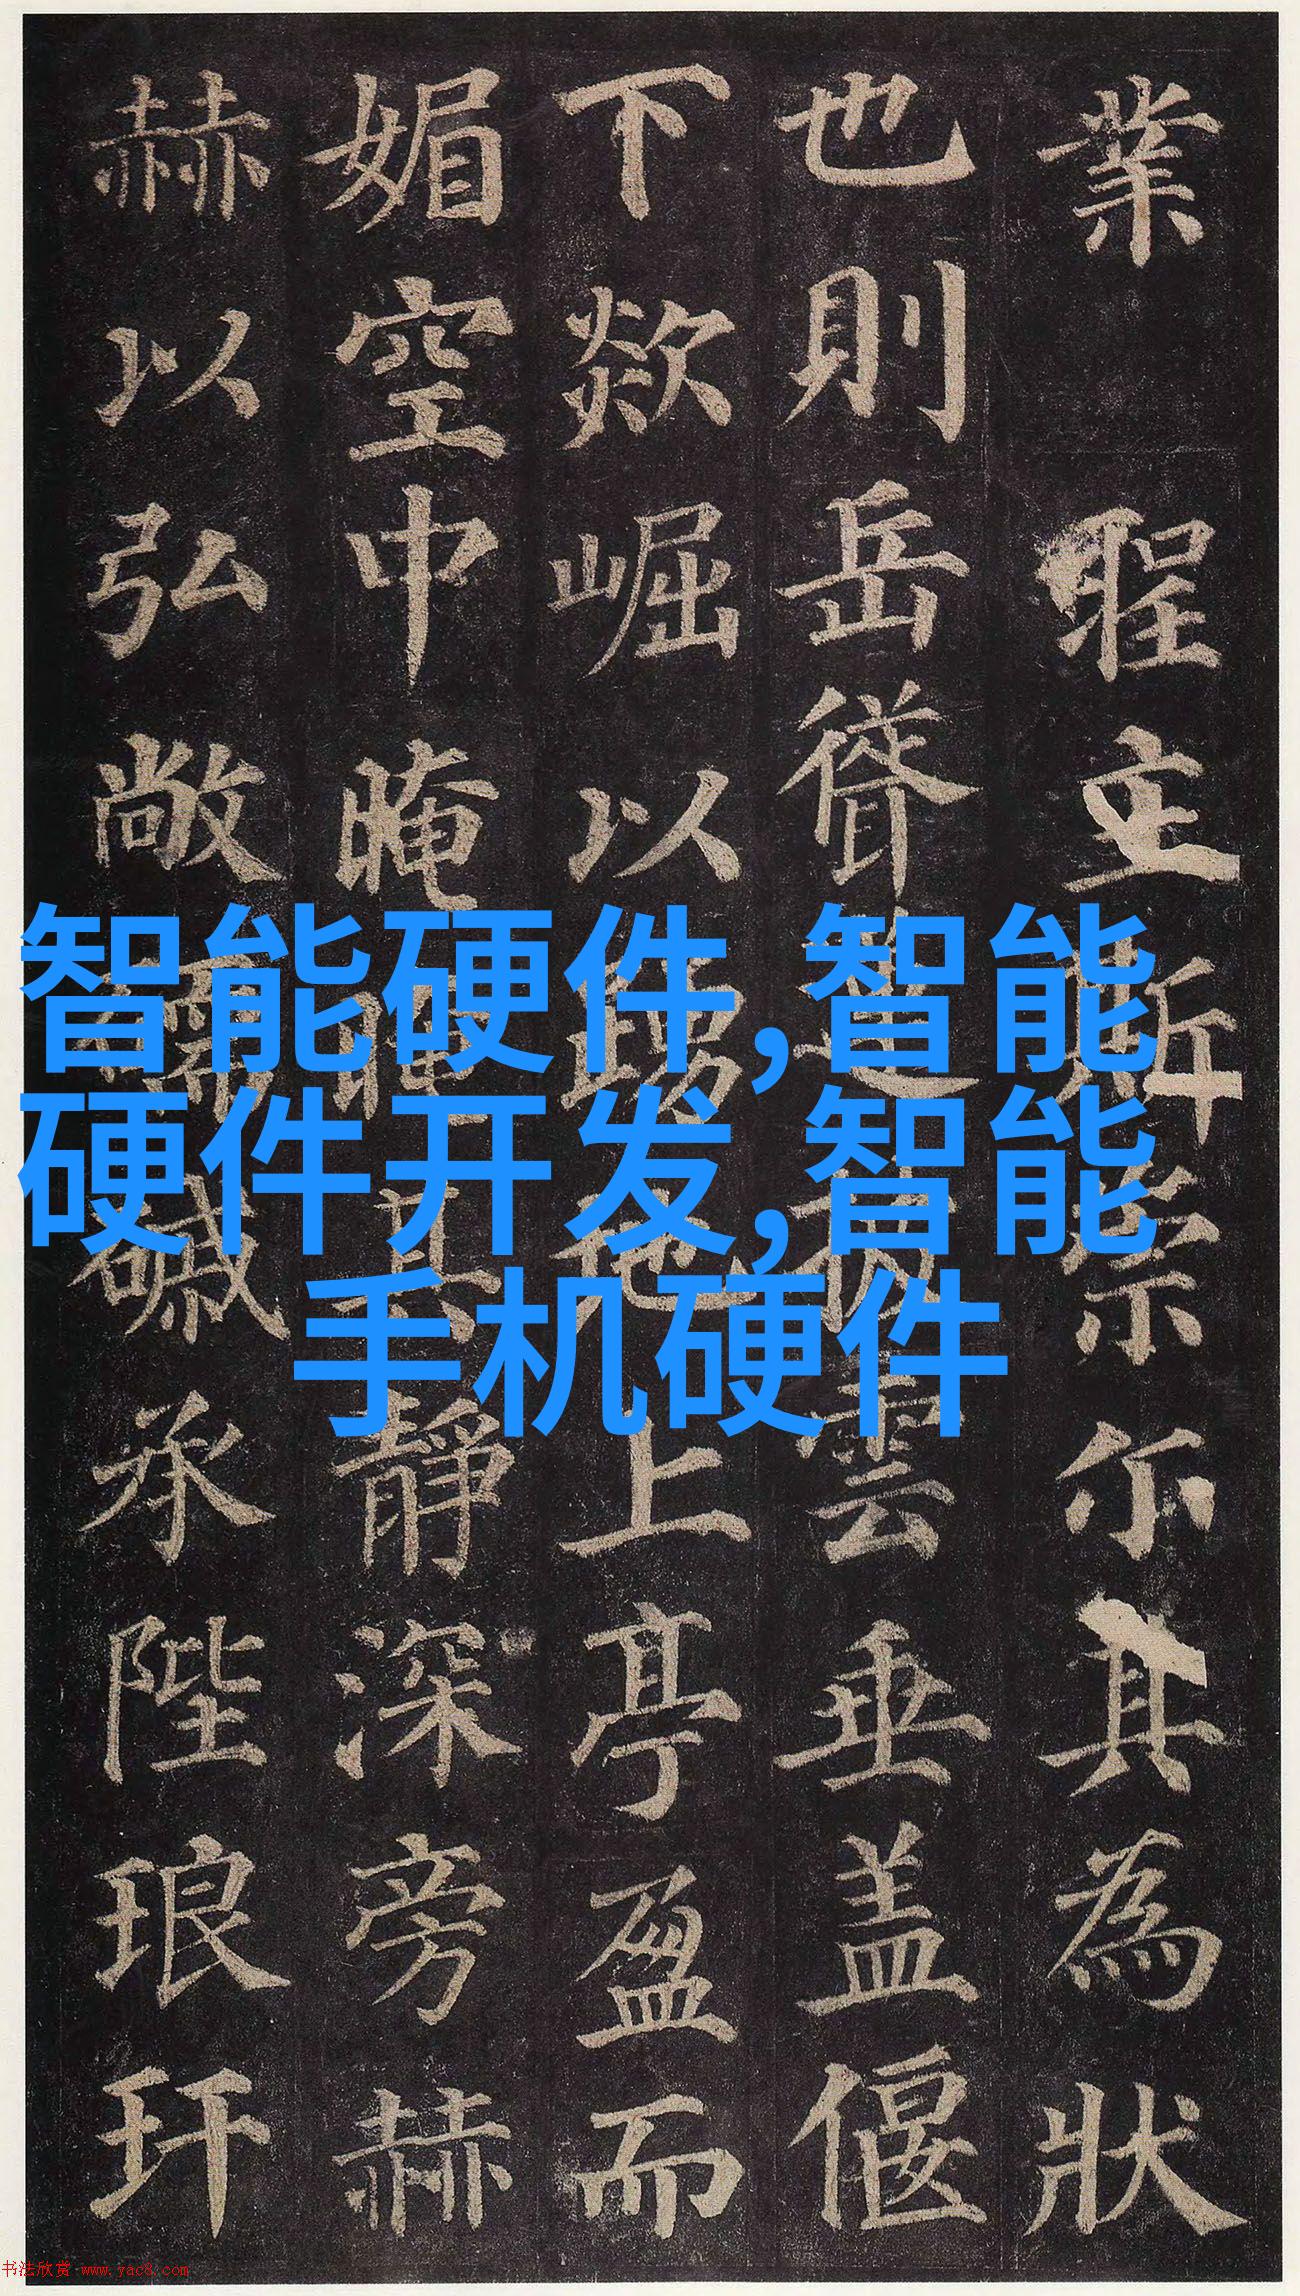 業 聖立斯崇尔其為狀
也則岳聳雲垂盖偃
下欻崛以踴地上亭盈而
媚空中晻其靜深旁赫
赫以弘敞承陛琅玕
智能硬件,智能
硬件开发,智能
手机硬件
书法欣赏 www.yac8.com